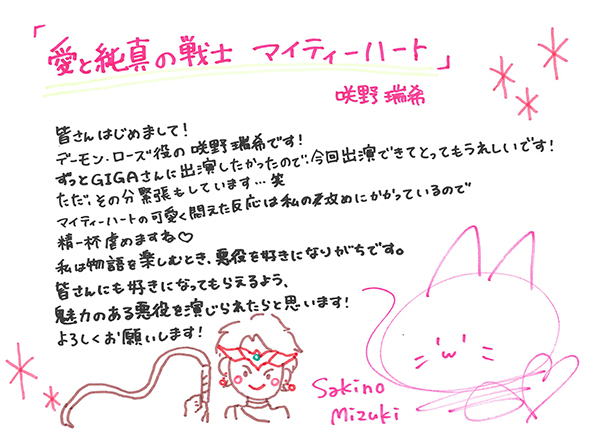 「愛と純真の戦士 マイティーハート」
咲野 瑞希
皆さんはじめまして!
デーモン・ローズ役の咲野瑞希です!
ずっとGIGAさんに出演したかったので、今回出演できてとってもうれしいです!
ただ、その分緊張もしています…笑
マイティーハートの可愛く悶えた反応は私の責め にかかっているので
精一杯虐めますね♡
私は物語を楽しむとき、悪役を好きになりがちです。
皆さんにも好きになってもらえるよう、
魅力のある悪役を演じられたらと思います!
よろしくお願いします!
Sakino
Mizuki